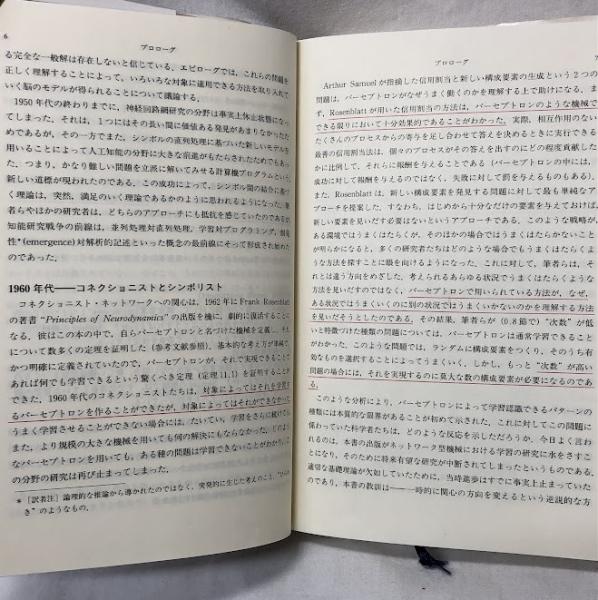 6
プロローグ
る完全な一般解は存在しないと信じている．エピローグでは，これらの問題を
正しく理解することによって，いろいろな対象に適用できる方法を取り入れて
いく脳のモデルが得られることについて議論する．
1950 年代の終わりまでに，神経回路網研究の分野は事実上休止状態になっ
てしまった．それは，1つにはその長い間に価値ある発見があまりなかったた
めであるが，その一方でまた，シンボルの直列処理に基づいた新しいモデルを
用いることによって人工知能の分野に大きな前進がもたらされたためでもあっ
た．つまり，かなり難しい問題を立派に解いてみせる計算機プログラムという
新しい道標が現われたのである．この成功によって，シンボル間の結合に基づ
く理論は，突然，満足のいく理論であるかのように思われるようになった．筆
者らやほかの研究者は，どちらのアプローチにも抵抗を感じていたのであるが，
知能研究戦争の前線は，並列処理対直列処理，学習対プログラミング，創発
性*(emergence) 対解析的記述といった概念の最前線にそって形成され始めた
のであった．
1960 年代——コネクショニストとシンボリスト
コネクショニスト・ネットワークへの関心は，1962 年に Frank Rosenblatt
の著書 “Principles of Neurodynamics” の出版を機に，劇的に復活することに
なる．彼はこの本の中で，自らパーセプトロンと名づけた機械を定義し，それ
について数多くの定理を証明した (参考文献参照)．基本的な考え方が単純で
かつ明確に定義されていたので，パーセプトロンが，それで実現できること
あれば何でも学習できるという驚くべき定理 (定理 11.1) を証明することが
できた．1960 年代のコネクショニストたちは，対象によってはそれを学習す
るパーセプトロンを作ることができたが，対象によってはそれができなかった．
うまく学習させることができない場合には，たいてい，学習をさらに続けても，
また，より規模の大きな機械を用いても何の解決にもならなかった．どのよう
なパーセプトロンを用いても，ある種の問題は学習できないことがわかり，こ
の分野の研究は再び止まってしまった．
* [訳者注] 論理的な推論から導かれたのではなく，突発的に生じた考えのこと．“ひらめ
き” のようなもの．
プロローグ
7
Arthur Samuel が指摘した信用割当と新しい構成要素の生成という2つの
問題は，パーセプトロンがなぜうまく働くのかを理解する上で助けになる．ま
ず，Rosenblatt が用いた信用割当の方法は，パーセプトロンのような機械で
できる限りにおいて十分効果的であることがわかった．実際，相互作用のない
たくさんのプロセスからの寄与を足し合わせて答えを決めるときに実行できる
最善の信用割当法は，個々のプロセスがその答えを出すのにどの程度貢献した
かに比例して，それらに報酬を与えることである (パーセプトロンの中には，
成功に対して報酬を与えるのではなく，失敗に対して罰を与えるものもある)．
また，Rosenblatt は，新しい構成要素を発見する問題に対して最も単純なア
プローチを採択した．すなわち，はじめから十分なだけの要素を与えておけば，
新しい要素を見いだす必要はないというアプローチである．このような戦略が，
ある環境ではうまくはたらくが，そのほかの場合ではうまくはたらかないこと
が明らかになると，多くの研究者たちはどのような場合でもうまくはたらくよう
な方法を探すことに眼を向けるようになった．これに対して，筆者らは，それ
とは違う方向をめざした．考えられるあらゆる状況でうまくはたらくような
方法を見いだすのではなく，パーセプトロンで用いられている方法が，なぜ，
ある状況ではうまくいくのに別の状況ではうまくいかないのかを理解する方法
を見いだそうとしたのである．その結果，筆者らが (0.8 節で) “次数” が低い
と特徴づけた種類の問題については，パーセプトロンは通常学習できること
がわかった．このような問題では，ランダムに構成要素をつくり，そのうち有
効なものを選択することによってうまくいく．しかし，もっと “次数” が高い
問題の場合には，それを実現するのに莫大な数の構成要素が必要になるのであ
る．
このような分析により，パーセプトロンによって学習認識できるパターンの
種類には本質的な限界があることが初めて示された．これに対してこの問題に
係わっていた科学者たちは，どのような反応を示しただろうか．今日よく言わ
れるのは，本書の出版がネットワーク型機械における学習の研究に水をさすこ
とになり，そのために将来有望な研究が中断されてしまったというものである．
適切な基礎理論が欠如していたために，当時進歩はすでに事実上止まっていた
のであり，本書の教訓は——一時的に関心の方向を変えるという逆説的な方